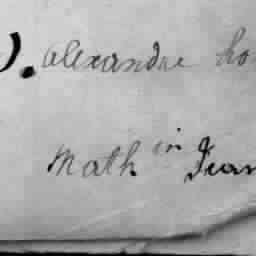 ). alexandre ho
Math in Jean